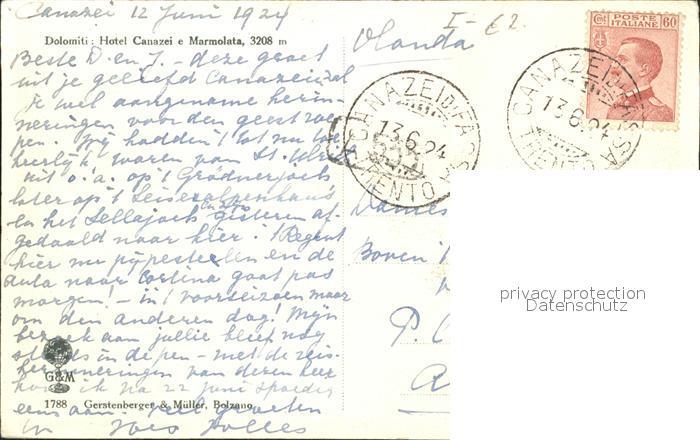 Canazei 12 Juni 1924
I- £2.
Dolomiti: Hotel Canazei e Marmolata, 3208 m
Olanda
Cent POSTE ITALIANE 60
CANAZEI DI FASSA
13.6.24
TRENTO
CANAZEI DI FASSA
13.6.24
TRENTO
Beste D. en J. - deze groet
uit je geliefd Canazei zal
je wel aangename herin-
neringen voor den geest roe-
pen. Wij hadden 't tot nu toe
heerlijk, waren van St. Ulrich
uit o.a. op 't Grödnerjoch
later op 't Seiseralpenhaus
en het Sellajoch gisteren af-
gedaald naar hier. 't Regent
hier nu pijpestelen en de
auto naar Cortina gaat pas
morgen! - in 't voorseizoen maar
om den anderen dag! Mijn
bezoek aan jullie bleef nog
steeds in de pen - met de reis-
herinneringen van deren keer
kom ik na 22 Juni spoedig
eens aan. Veel groeten
Dames
Boven
P.C.
A
privacy protection
Datenschutz
G&M
1788 Gerstenberger & Müller, Bolzano.